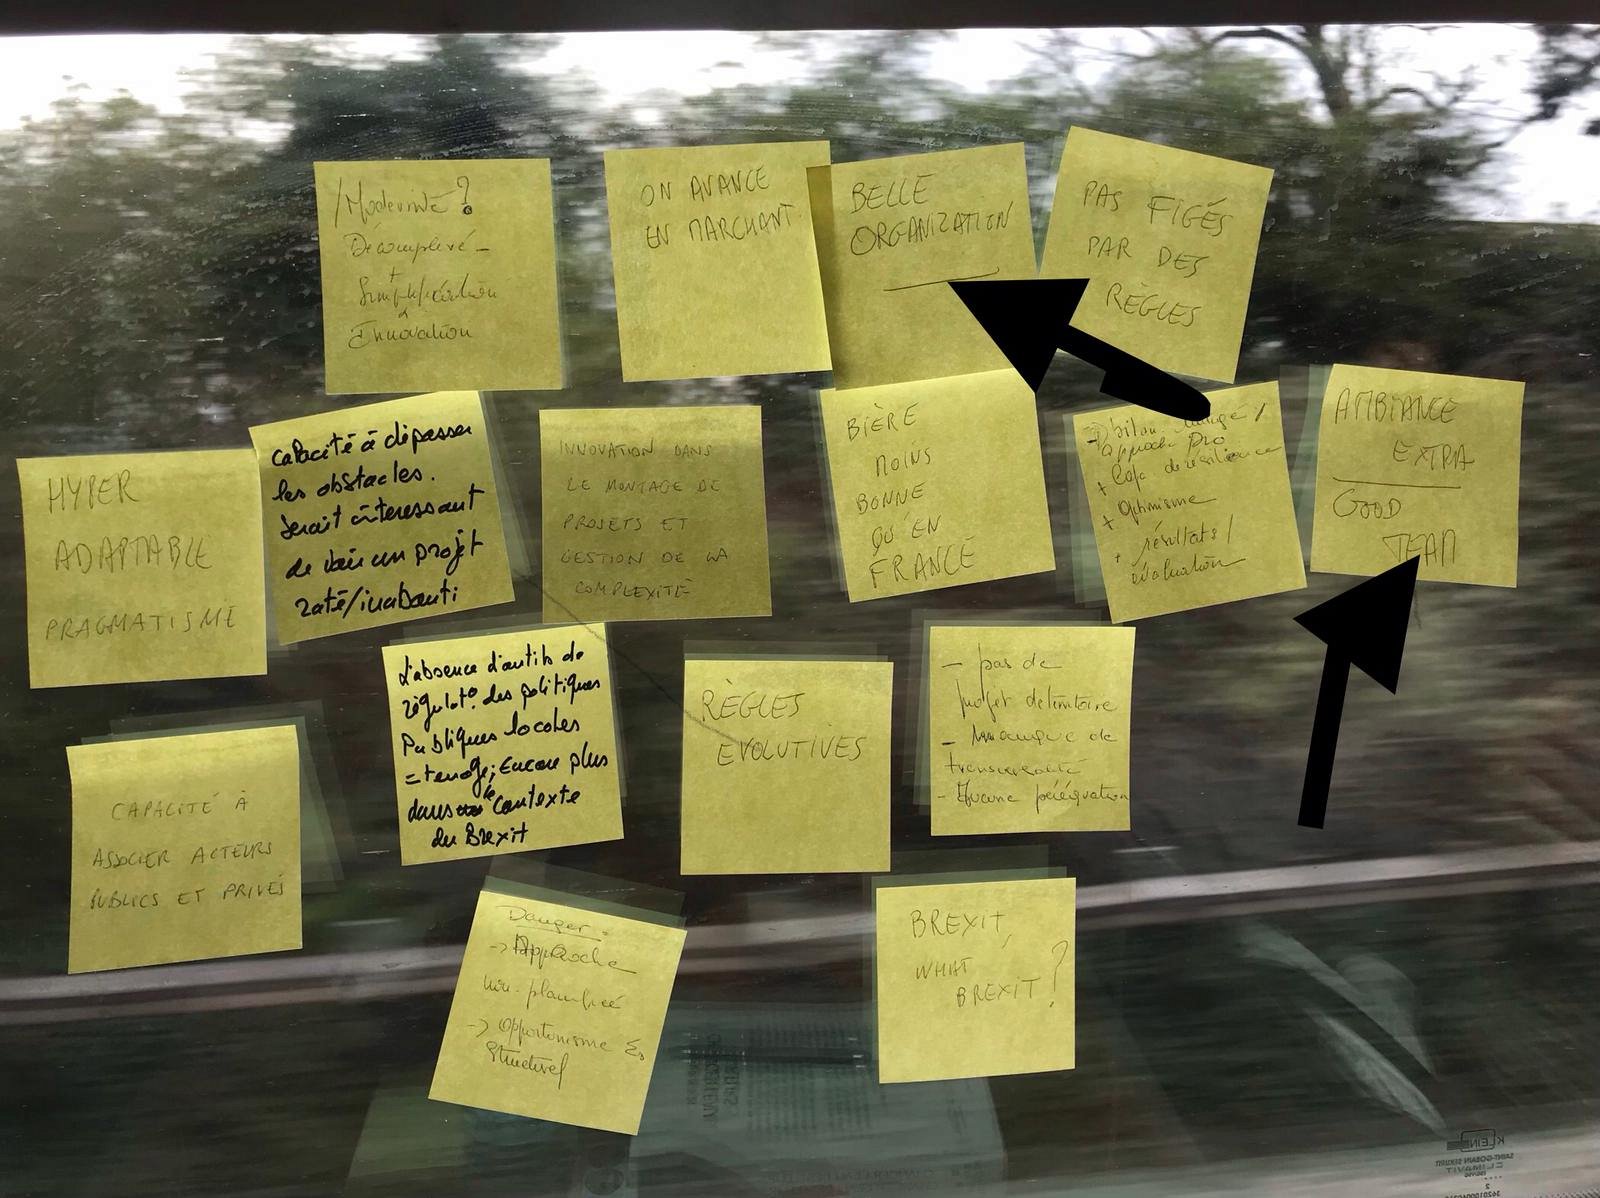 Modernité ?
Décomplexé -
+
Simplification
&
Innovation
ON AVANCE
EN MARCHANT
BELLE
ORGANIZATION
PAS FIGÉS
PAR DES
RÈGLES
HYPER
ADAPTABLE
PRAGMATISME
CAPACITÉ à dépasser
les obstacles.
Serait intéressant
de voir un projet
raté/inabouti
INNOVATION DANS
LE MONTAGE DE
PROJETS ET
GESTION DE LA
COMPLEXITÉ
BIÈRE
MOINS
BONNE
QU'EN
FRANCE
- bilan
approche pro
+ Capa de résilience
+ Optimisme
+ résultats /
évaluation
AMBIANCE
EXTRA
GOOD
TEAM
CAPACITÉ À
ASSOCIER ACTEURS
PUBLICS ET PRIVÉS
L'absence d'outils de
régulat° des politiques
Publiques locales
= ; Encore plus
dans le Contexte
du Brexit
RÈGLES
EVOLUTIVES
- pas de
projet de territoire
- manque de
transversalité
- Aucune péréquation
Danger :
-> Approche
planifiée
-> Opportunisme
Structurel
BREXIT,
WHAT
BREXIT ?
KLEIN